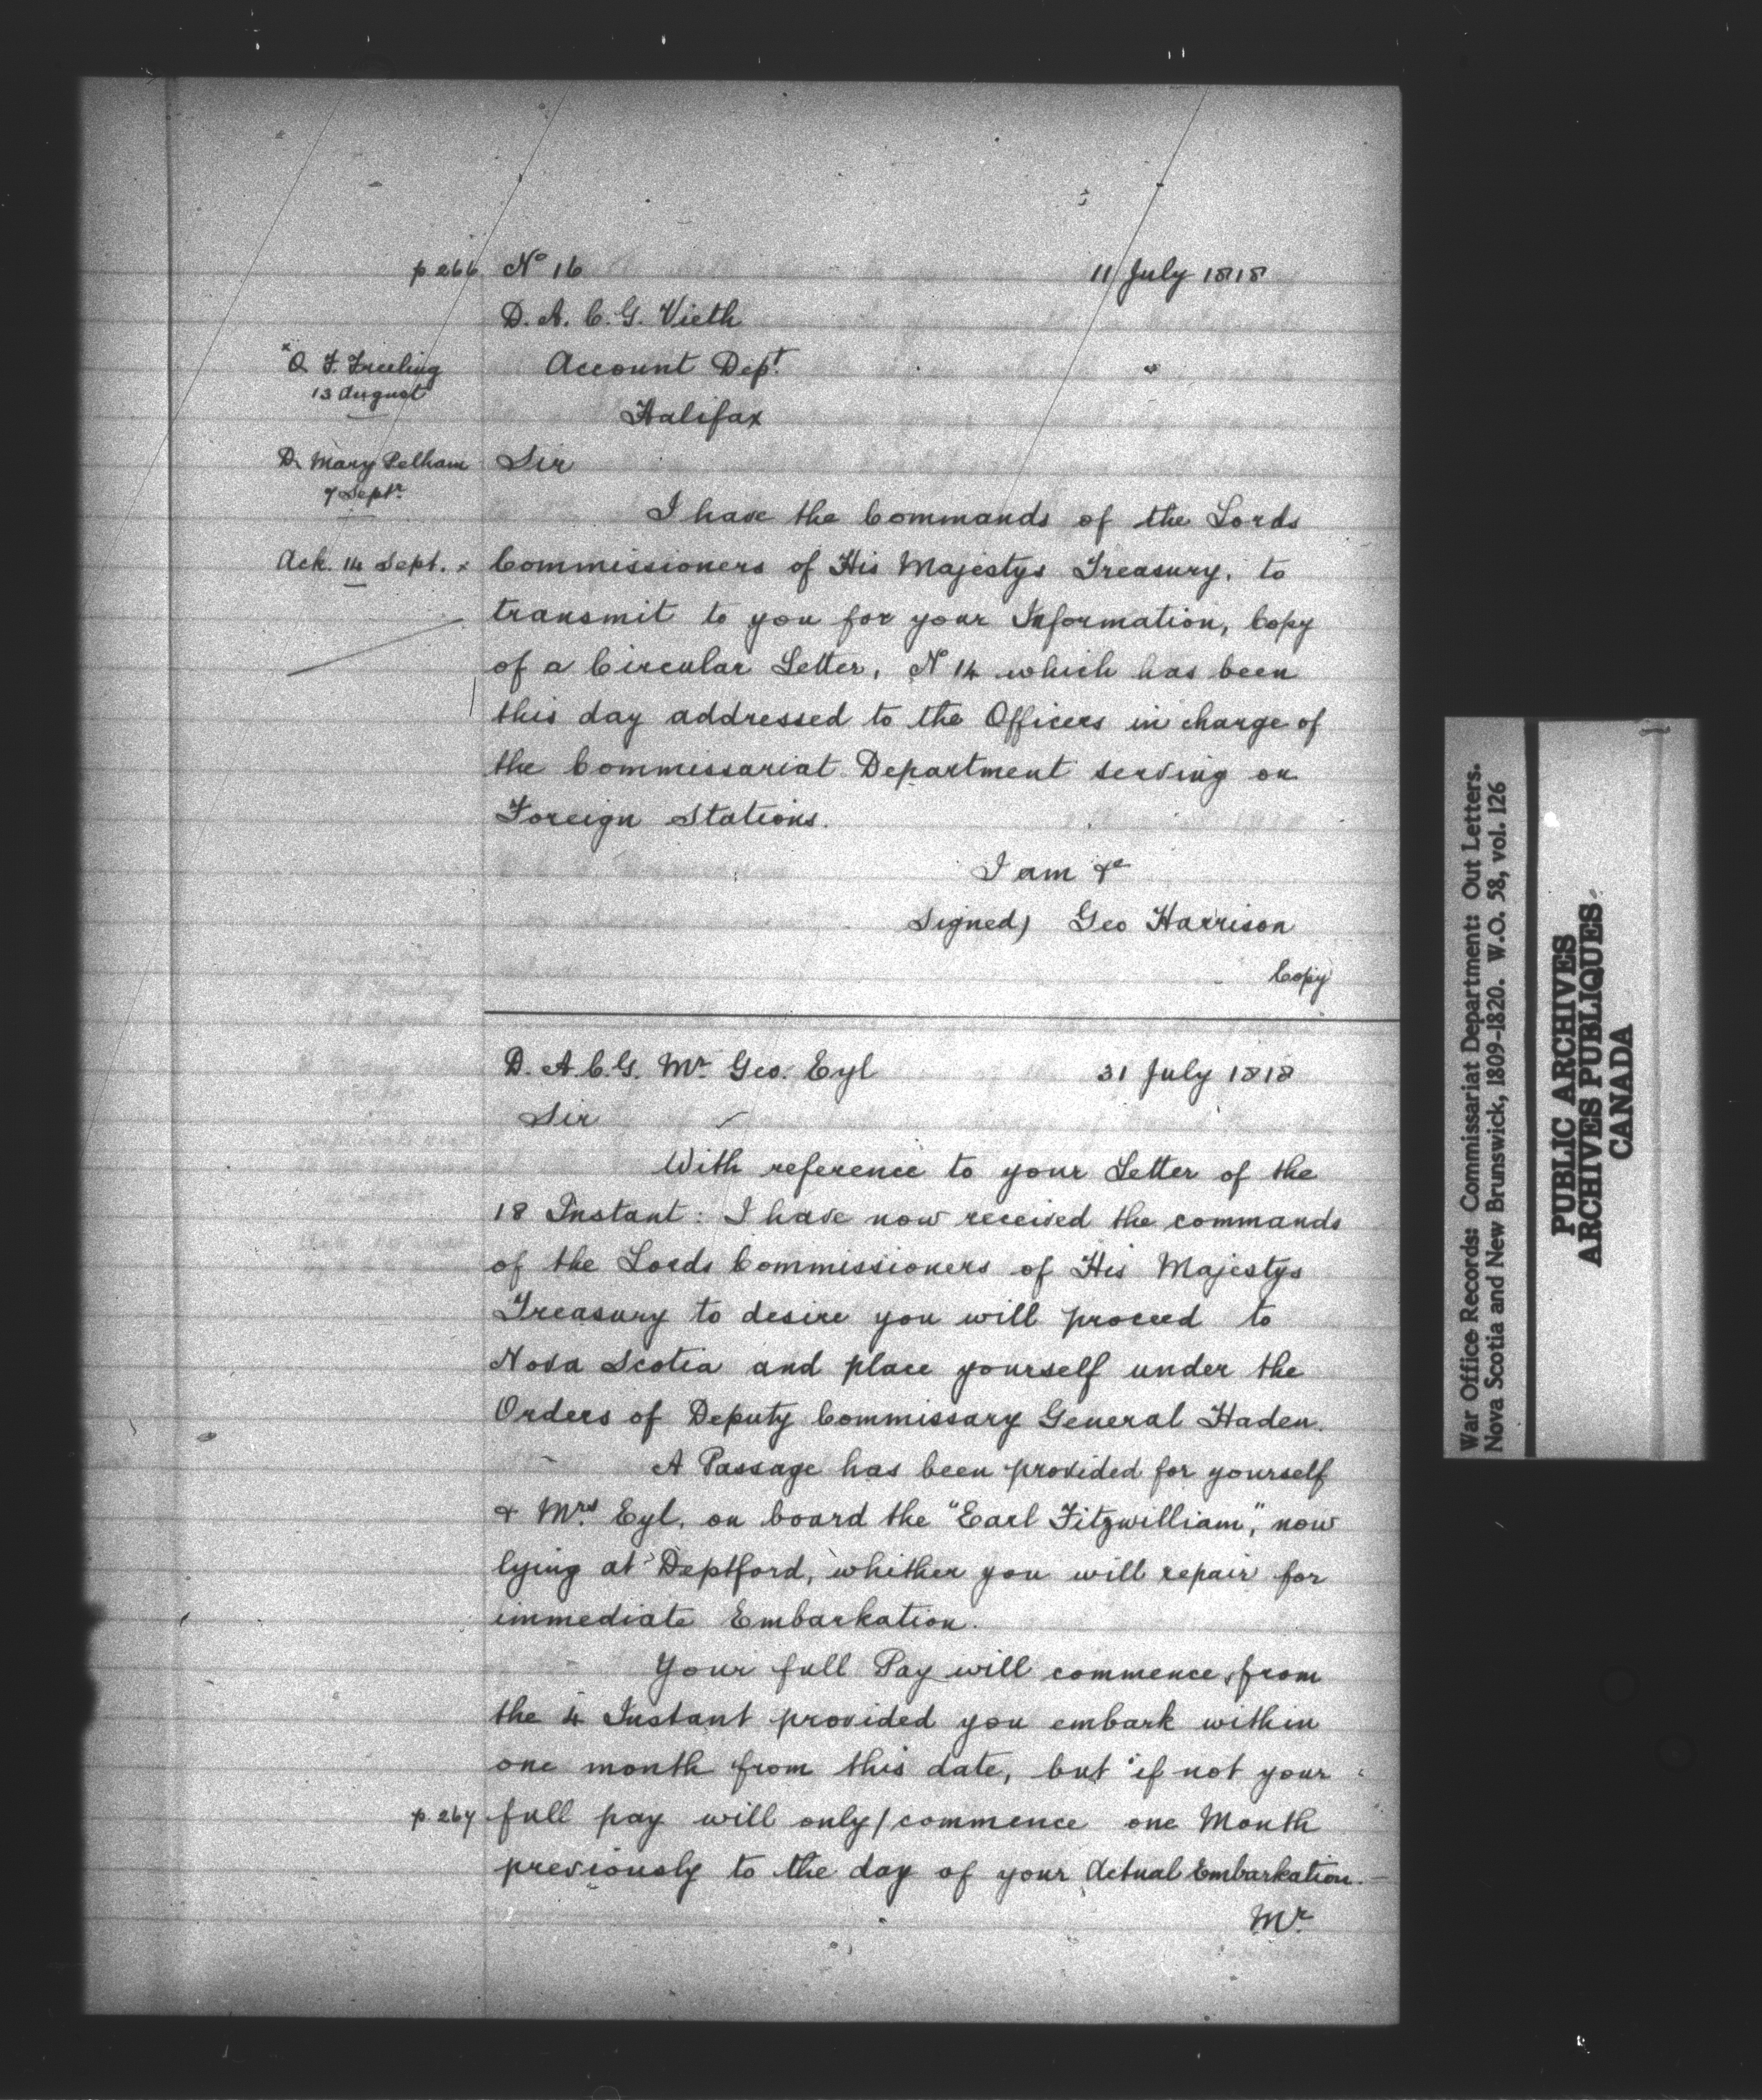 p 266 Nº 16 11 July 1818
D. A. C. G. Vieth
Account Dept "
Halifax
x O. F. Freeling
13 August
D. Mary Pelham
7 Septr
Ack. 14 Sept. x
Sir
I have the Commands of the Lords
Commissioners of His Majestys Treasury, to
transmit to you for your Information, Copy
of a Circular Letter, Nº 14 which has been
this day addressed to the Officers in charge of
the Commissariat Department serving on
Foreign Stations.
I am &c
Signed) Geo Harrison
Copy
D. A. C. G. Mr Geo. Eyl 31 July 1818
Sir
With reference to your Letter of the
18 Instant: I have now received the commands
of the Lords Commissioners of His Majestys
Treasury to desire you will proceed to
Nova Scotia and place yourself under the
Orders of Deputy Commissary General Haden.
A Passage has been provided for yourself
& Mrs Eyl, on board the "Earl Fitzwilliam", now
lying at Deptford, whither you will repair for
immediate Embarkation.
Your full Pay will commence from
the 4 Instant provided you embark within
one month from this date, but if not your
p. 267 full pay will only / commence one Month
previously to the day of your Actual Embarkation.
Mr
War Office Records: Commissariat Department: Out Letters.
Nova Scotia and New Brunswick, 1809-1820. W.O. 58, vol. 126
PUBLIC ARCHIVES
ARCHIVES PUBLIQUES
CANADA